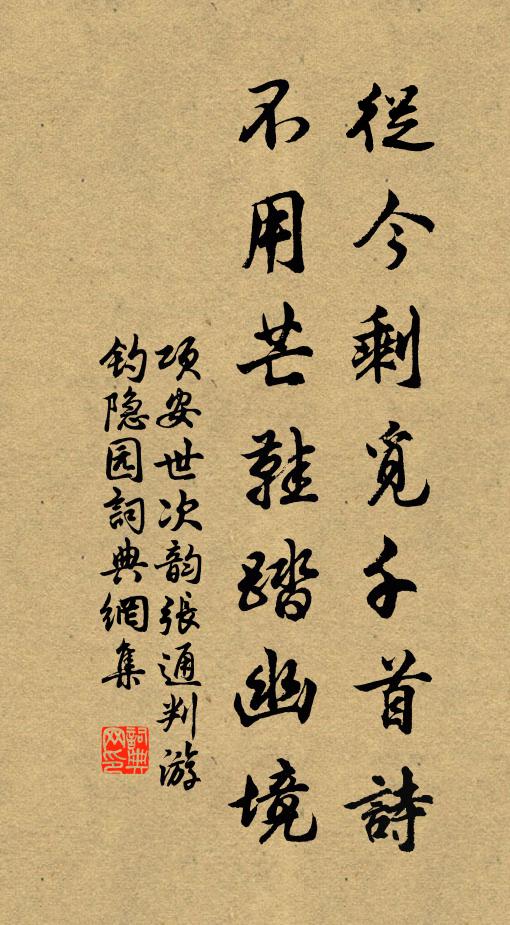 從今剩覓千首詩
不用芒鞋踏幽境
项安世次韵張通判游
钓隐园詞典網集
詞典網印